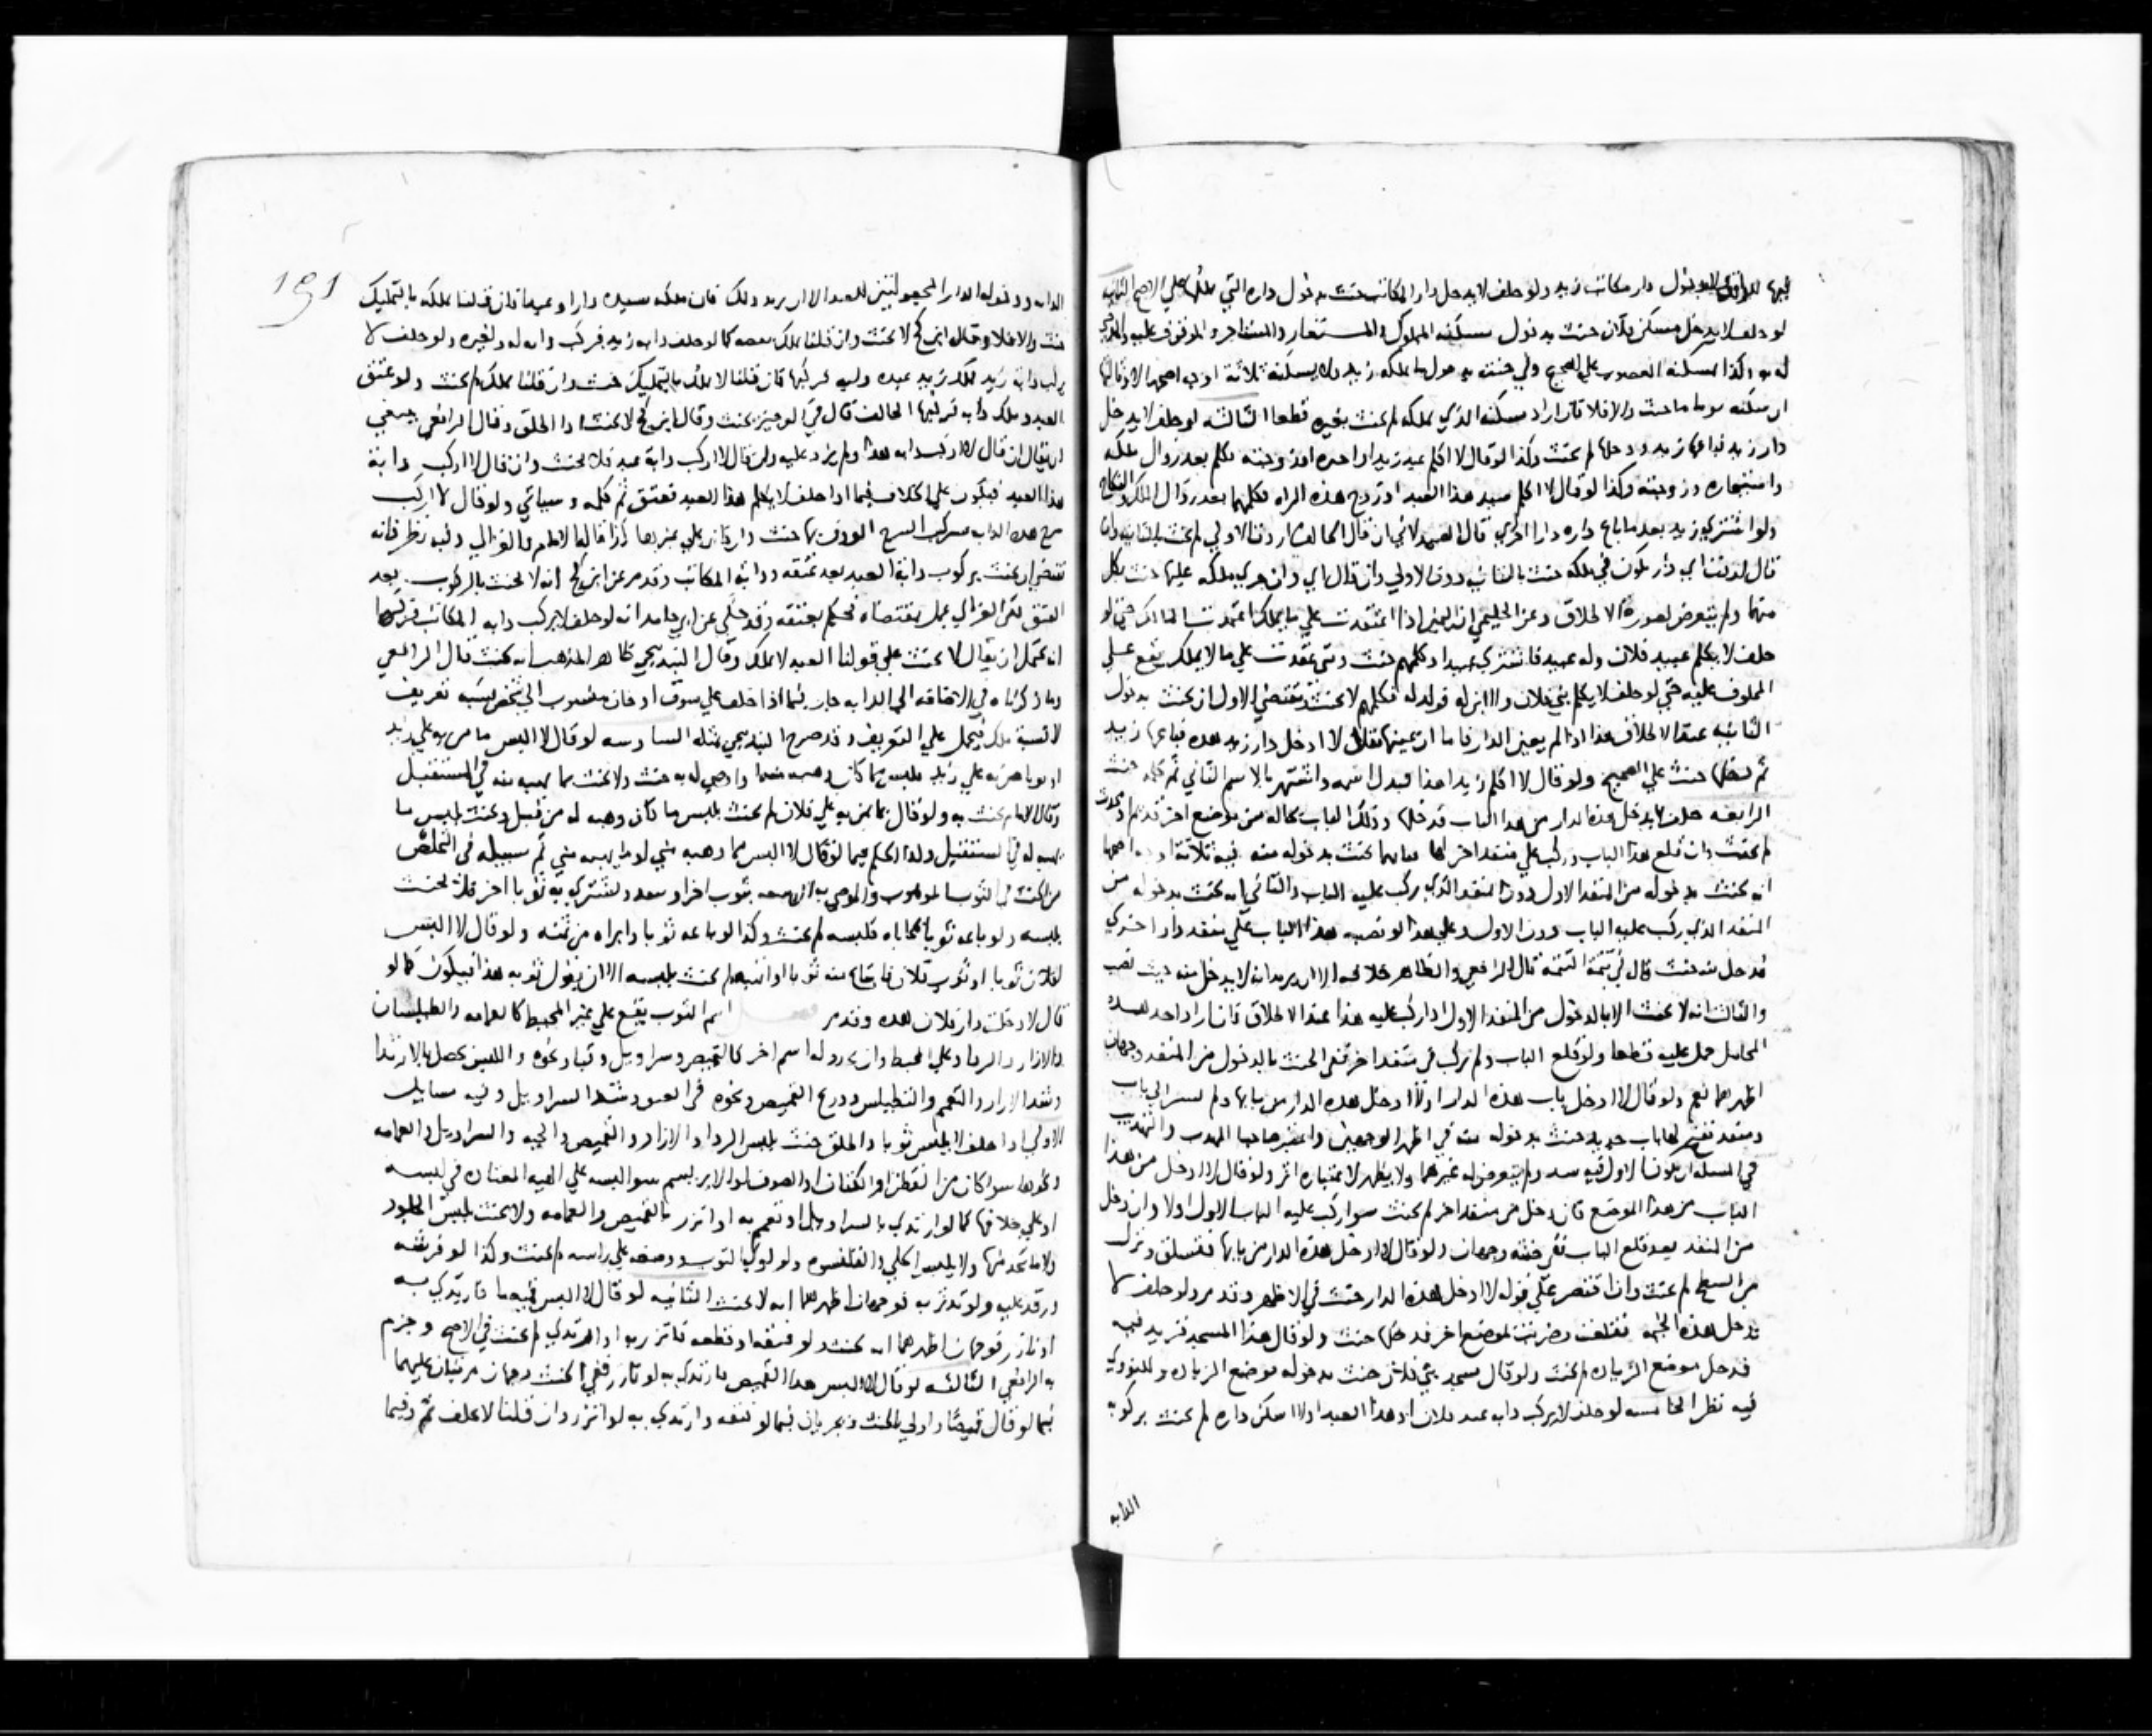 بدخول دار مكاتب زيد ولو حلف لا يدخل دار المكاتب حنث بدخول داره التي على الاصح الثانية
لو حلف لا يدخل مسكن فلان حنث بدخول مسكنه المملوك والمستعار والمستاجر والموقوف عليه
وكذا مسكنه المغصوب على الصحيح وفي حنثه بدخول ما يملكه زيد ولا يسكنه ثلاثة اوجه اصحها
ان سكنه يوما ما حنث والا فلا فان اراد مسكنه الذي يملكه لم يحنث بغيره قطعا الثالثة لو حلف لا يدخل
دار زيد فباعها زيد ودخلها لم يحنث وكذا لو قال لا اكلم عبد زيد او اجيره او زوجته فكلم بعد زوال ملكه
وزوجته وكذا لو قال لا اكلم سيد هذا العبد او زوج هذه المراه فكلمهما بعد زوال الملك والنكاح
ولو اشترى زيد بعد ما باع داره دارا اخرى قال ان قال الحالف اردت الاولى لم يحنث بالثانية وان
قال اردت اي دار تكون في ملكه حنث بالثانية دون الاولى وان قال اي دار جرى ملكه عليها حنث بكل
منهما ولم يتعرض لصورة الاطلاق وعن الحليمي ان اليمين اذا انعقدت على ما يملك اعتمدت المالك حتى لو
حلف لا يكلم عبيد فلان وله عبيد فاشترى عبيدا وكلمهم حنث ومتى عقدت على ما لا يملك يقع على
المحلوف عليه حتى لو حلف لا يكلم بني فلان ولد له فكلمهم لا يحنث فمقتضى الاول ان يحنث بدخول
الثانية عند الاطلاق هذا اذا لم يعين الدار فاما ان عينها فقال لا ادخل دار زيد هذه فباعها زيد
ثم دخلها حنث على الصحيح ولو قال لا اكلم زيدا هذا فبدل اسمه واشتهر بالاسم الثاني ثم كلمه حنث
الرابعة حلف لا يدخل هذه الدار من هذا الباب فدخلها وذلك الباب بحاله من موضع اخر قديم او محدث
لم يحنث وان قلع هذا الباب وركب على منفذ اخر لها ففيما يحنث بدخوله منه فيه ثلاثة اوجه اصحها
انه يحنث بدخوله من المنفذ الاول دون المنفذ الذي ركب عليه الباب والثاني انه يحنث بدخوله من
المنفذ الذي ركب عليه الباب دون الاول وعلى هذا لو نصب هذا الباب على منفذ دار اخرى
فدخل منه حنث قال في تتمة التتمة قال الرافعي والظاهر خلافه الا ان يريد انه لا يدخل منه حيث نصب
والثالث انه لا يحنث الا بالدخول من المنفذ الاول اذا ركب عليه هذا عند الاطلاق فان اراد احد هذه
المحامل حمل عليه قطعا ولو قلع الباب ولم يركب في منفذ اخر ففي الحنث بالدخول من المنفذ وجهان
اظهرهما نعم ولو قال لا ادخل باب هذه الدار او لا ادخل هذه الدار من بابها
ففتح لها باب جديد حنث بدخوله منه في اظهر الوجهين
في المسلة ان يكون الاول فيه سد ولم يتعرض له غيرهما ولا يظهر لاعتباره اثر ولو قال لا ادخل من هذا
الباب من هذا الموضع فان دخل من منفذ اخر لم يحنث سوا ركب عليه الباب الاول او لا وان دخل
من المنفذ بعد قلع الباب ففي حنثه وجهان ولو قال لا ادخل هذه الدار من بابها فتسلق ونزل
من السطح لم يحنث وان اقتصر على قوله لا ادخل هذه الدار حنث في الاظهر وقد مر ولو حلف لا
يدخل هذه الخيمه فقلعت وضربت لموضع اخر فدخلها حنث ولو قال هذا المسجد فزيد فيه
فدخل موضع الزياده لم يحنث ولو قال مسجد بني فلان حنث بدخوله موضع الزياده وللنووي
فيه نظر الخامسه لو حلف لا يركب دابه عبد فلان او هذا العبد او لا اسكن داره لم يحنث بركوبه
الدابه
191
الدابه ودخوله الدار المجعولتين للعبد الا ان يريد ذلك فان ملكه سيده دارا وعبدا فان قلنا يملكه بالتمليك
حنث والا فلا وقال ابن كج لا يحنث وان قلنا يملك كما لو حلف دابه زيد فركب دابه له ولغيره ولو حلف لا
يركب دابة زيد فملك زيد عبده دابه فركبها فان قلنا لا يملك بالتمليك حنث وان قلنا يملك لم يحنث ولو عتق
العبد وملك دابه فركبها الحالف قال في الوجيز يحنث وقال ابن كج لا يحنث اذا اطلق وقال الرافعي ينبغي
ان يقال ان قال لا اركب دابه هذا ولم يزد عليه وان قال لا اركب دابة عبد فلا يحنث وان قال لا اركب دابة
هذا العبد فيكون على الخلاف فيما اذا حلف لا يكلم هذا العبد فعتق ثم كلمه وسياتي ولو قال لا اركب
سرج هذه الدابه فركب السرج المعروف بها حنث وان كان على غيرها كذا قاله الامام والغزالي وفيه نظر فانه
يقتضي ان يحنث بركوب دابة العبد بعد عتقه ودابة المكاتب وقد مر عن ابن كج انه لا يحنث بالركوب بعد
العتق لكن الغزالي عمل بمقتضاه فحكم بعتقه وقد حكى عن ابي حامد انه لو حلف لا يركب دابه المكاتب فركبها
انه يحتمل ان يقال لا يحنث على قولنا العبد لا يملك وقال البندنيجي ظاهر المذهب انه يحنث قال الرافعي
وما ذكرناه في الاضافه الى الدابه جار فيما اذا حلف على سوق او خان منسوب الى شخص نسبه تعريف
لا نسبة ملك فيحمل على التعريف وقد صرح البندنيجي بمثله السادسه لو قال لا البس ما من به علي زيد
او ما من به علي زيد فلبس ما كان وهبه منه او اوصى له به حنث ولا يحنث بما يهبه منه في المستقبل
وقال الامام يحنث به ولو قال بما يمن به علي فلان لم يحنث بلبس ما كان وهبه له من قبل ويحنث بلبس ما
يهبه له في المستقبل وكذا الحكم فيما لو قال لا البس مما وهبه مني او ما يهبه مني ثم سبيله في التخلص
من الحنث في الثوب الموهوب والموصى به ان يبيعه بثوب اخر او بنقد ويشتري به ثوبا اخر فلا يحنث
بلبسه ولو باعه ثوبا بمحاباه فلبسه لم يحنث وكذا لو باعه ثوبا وابراه من ثمنه ولو قال لا البس
لفلان ثوبا او ثوب فلان فابتاع منه ثوبا او اتهبه لم يحنث بلبسه الا ان يقول ثوبه هذا فيكون كما لو
قال لا دخلت دار فلان هذه وقد مر فصل اسم الثوب يقع على غير المخيط كالعمامه والطيلسان
والازار والردا وعلى المخيط وان تجدد له اسم اخر كالقميص وسراويل وقبا ونحوه واللبس يحصل بالارتدا
وشد الازار والتعمم والتطيلس ودرع القميص ونحوه وشد السراويل وفيه مسايل
الاولى اذا حلف لا يلبس ثوبا واطلق حنث بلبس الردا والازار والقميص والجبه والسراويل والعمامه
ونحوها سوا كان من القطن او الكتان او الصوف او الابريسم سوا لبسه على الهيه المعتاده في لبسه
او على خلافها كما لو ارتدى بالسراويل او تعمم به او اتزر بالقميص والعمامه ولا يحنث بلبس الجلود
ولا ما يتخذ منها ولا بلبس الحلي والقلنسوه ولو لوى الثوب ووضعه على راسه لم يحنث وكذا لو فرشه
ورقد عليه ولو تدثر به فوجهان اظهرهما انه لا يحنث الثانيه لو قال لا البس قميصا فارتدى به
او اتزر فوجهان اظهرهما انه يحنث ولو فتقه او قطعه فاتزر به او ارتدى لم يحنث في الاصح وجزم
به الرافعي الثالثه لو قال لا البس هذا القميص فارتدى به او اتزر ففي الحنث وجهان مرتبان عليهما
فيما لو قال قميصا واولى بالحنث ويجريان فيما لو فتقه وارتدى به او اتزر وان قلنا لا يحلف ثم وفيما